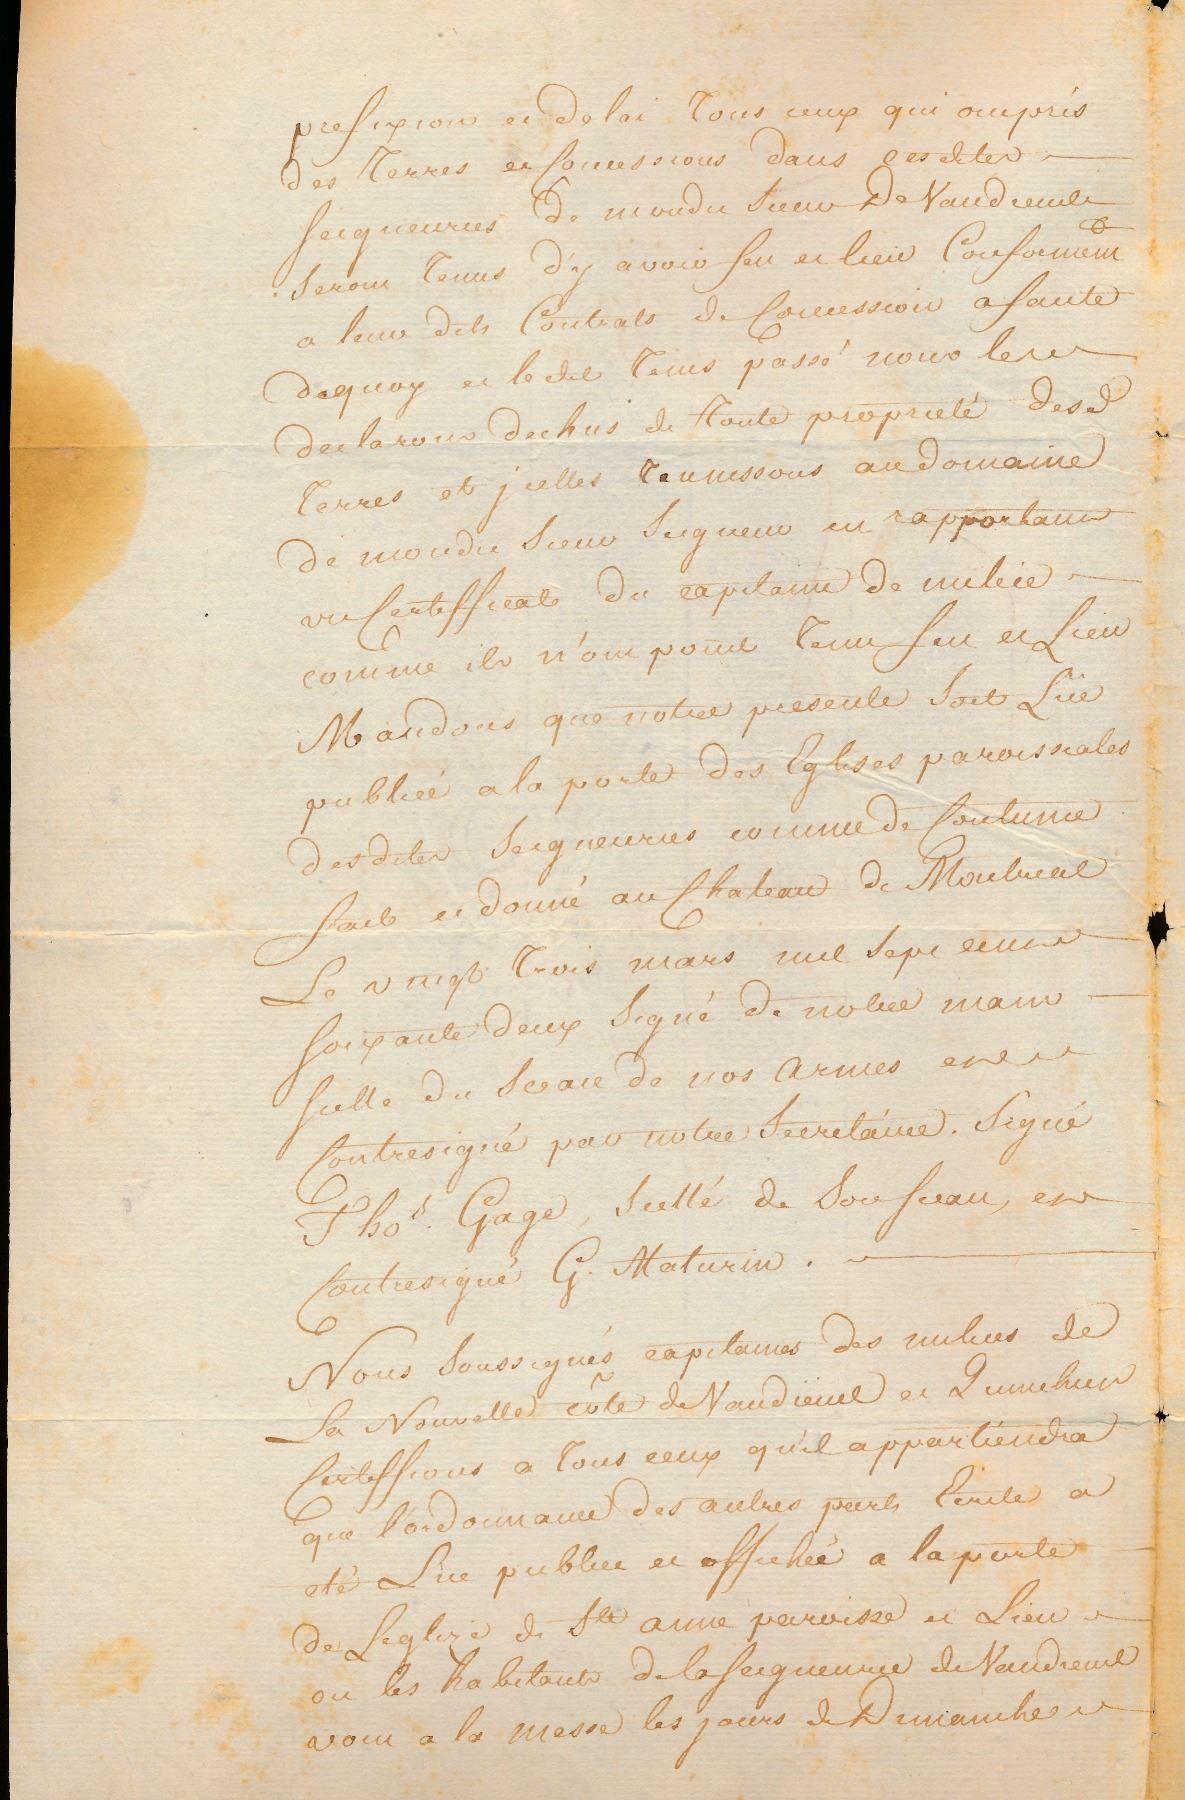 prefixion et delai Tous ceux qui ont pris
des Terres et Concessions dans cesdites
seigneuries de mondit sieur De Vaudreuil
seront Tenus d'y avoir feu et lieu Conformémt
a leur dits Contrats de Concession a faute
dequoy et ledit Tems passé nous les
declarons dechus de Toute proprieté desd
Terres et jcelles reunissons au domaine
de mondit sieur seigneur en rapportant
un Certifficat du capitaine de milice
comme ils n'ont point Tenu feu et Lieu
Mandons que notre presente soit Lüe
publiéé a la porte des Eglises paroissiales
desdites seigneuries comme de Coutume
fait et donné au Chateau de Montreal
Le vingt Trois mars mil sept cent
soixante deux signé de notre main
scellé du sceau de nos armes et
Contresigné par notre Secretaire. Signé
Thos. Gage, scellé de son sceau, et
Contresigné G. Maturin.
Nous soussignés capitaines des milices de
La Nouvelle côte de Vaudreuil et
Certiffions a Tous ceux qu'il appartiendra
que l'ordonnance des autres parts Ecrite a
eté Lue publiee et affichéé a la porte
de Leglise de Ste anne paroisse et Lieu
ou les habitants de la seigneurie de Vaudreuil
vont a la messe les jours de Dimanche